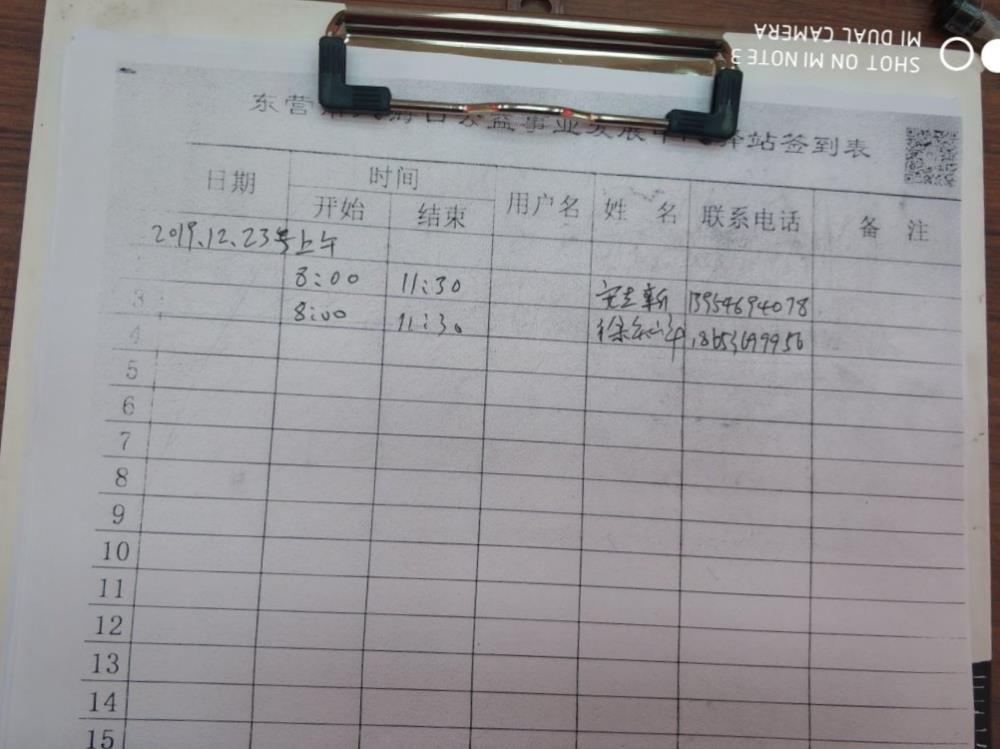 SHOT ON MI NOTE 3
MI DUAL CAMERA
东营 公益事业发展 驿站签到表
日期 时间 用户名 姓 名 联系电话 备 注
开始 结束
2019.12.23号上午
8:00 11:30 13954694078
3 8:00 11:30
4
5
6
7
8
9
10
11
12
13
14
15